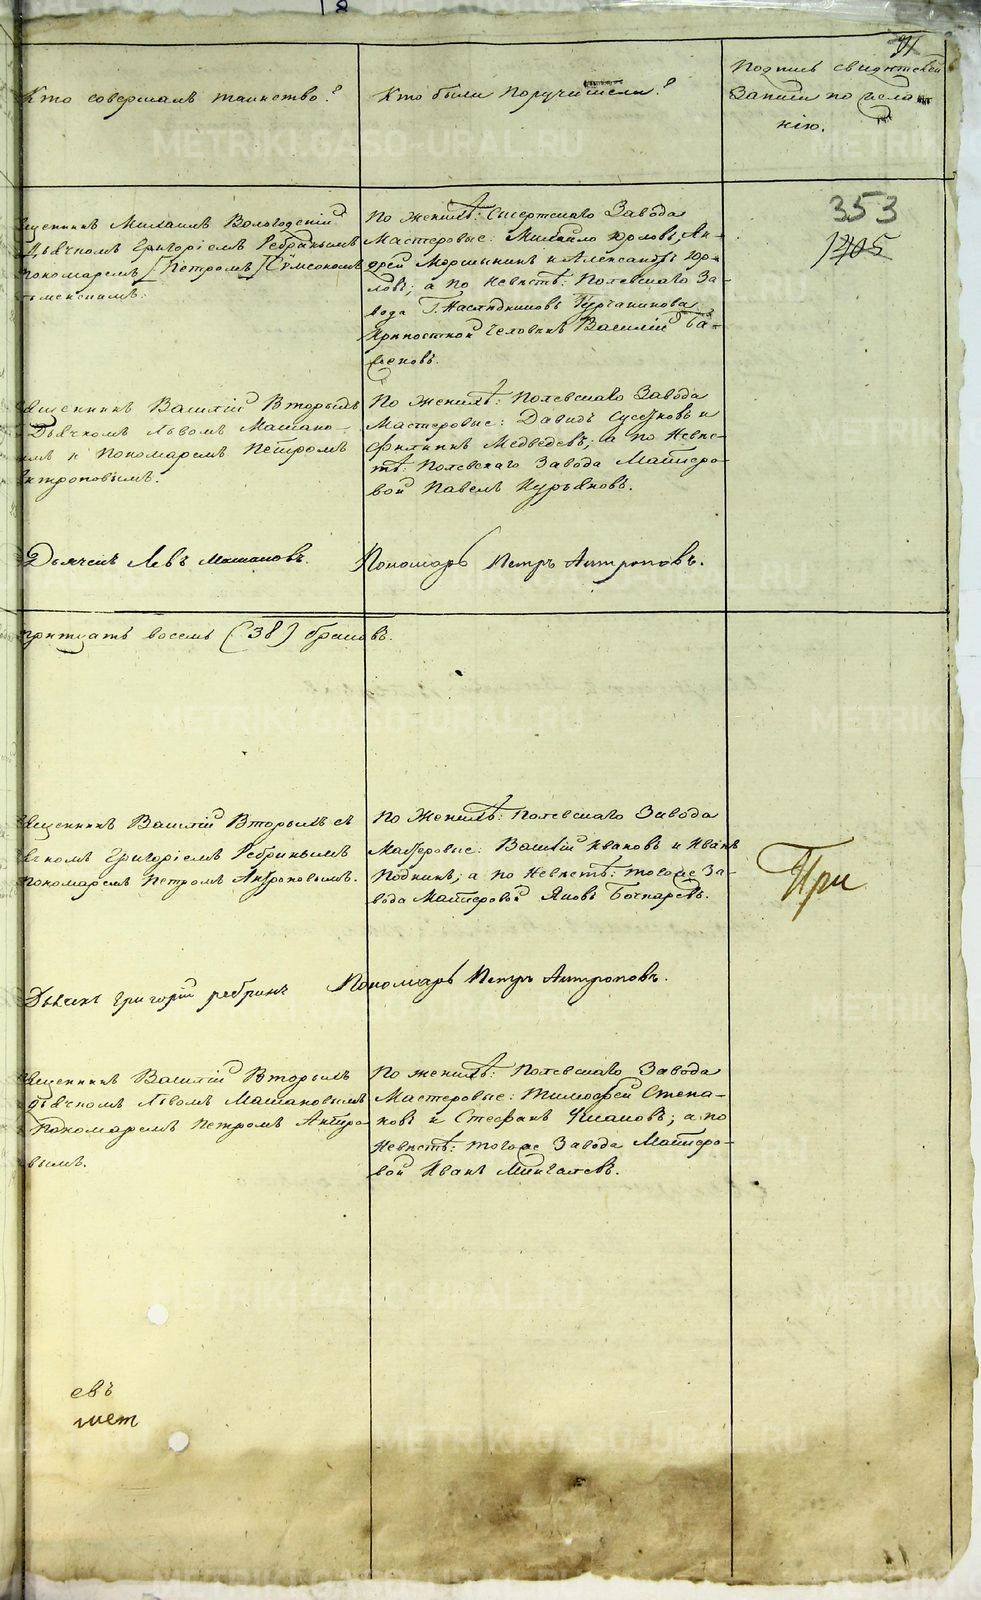 18
71
Кто совершалъ таинство?
Кто были поручители?
Подпись свидѣтелей
Записи по жела
нію.
353
1205
щенникъ Михаилъ Вологодскій
Дьячкомъ Григоріемъ Ребринымъ
пономаремъ [Петромъ] Сумеономъ
По женихѣ: Сысертскаго Завода
Мастеровые: Михайло Юрловъ, Ан-
дрей Моршининъ и Александръ Юр-
ловъ; а по невѣстѣ: Полевскаго За-
вода Г. Наслѣдниковъ Турчанинова
крѣпостной человѣкъ Василій Ба-
женовъ.
вященникъ Василій Вторыхъ
Дьячкомъ Львомъ Машано-
мъ и Пономаремъ Петромъ
нтроповымъ.
По женихѣ: Полевскаго Завода
Мастеровые: Давидъ Сусловъ и
Филиппъ Медведевъ; а по Невѣс-
тѣ: Полевскаго Завода Мастеро-
вой Павелъ Курьяновъ.
Дьячекъ Левъ Машановъ.
Пономарь Петръ Антроповъ.
тритцать восемь (38) браковъ.
вященникъ Василій Вторыхъ съ
ячкомъ Григоріемъ Ребринымъ
пономаремъ Петромъ Антроповымъ.
По Женихѣ: Полевскаго Завода
Мастеровые: Василій Ивановъ и Иванъ
; а по Невѣстѣ: тогоже За-
вода Мастеровой Яковъ Бочкаревъ.
При
Дьячекъ Григорій Ребринъ
Пономарь Петръ Антроповъ.
вященникъ Василій Вторыхъ
дьячкомъ Львомъ Машановымъ
Пономаремъ Петромъ Антро-
вымъ.
По женихѣ: Полевскаго Завода
Мастеровые: Тимофей Степа-
новъ и Стефанъ ; а по
Невѣстѣ: тогоже Завода Мастеро-
вой Иванъ Мингалевъ.
евъ
шет
METRIKI.GASO-URAL.RU